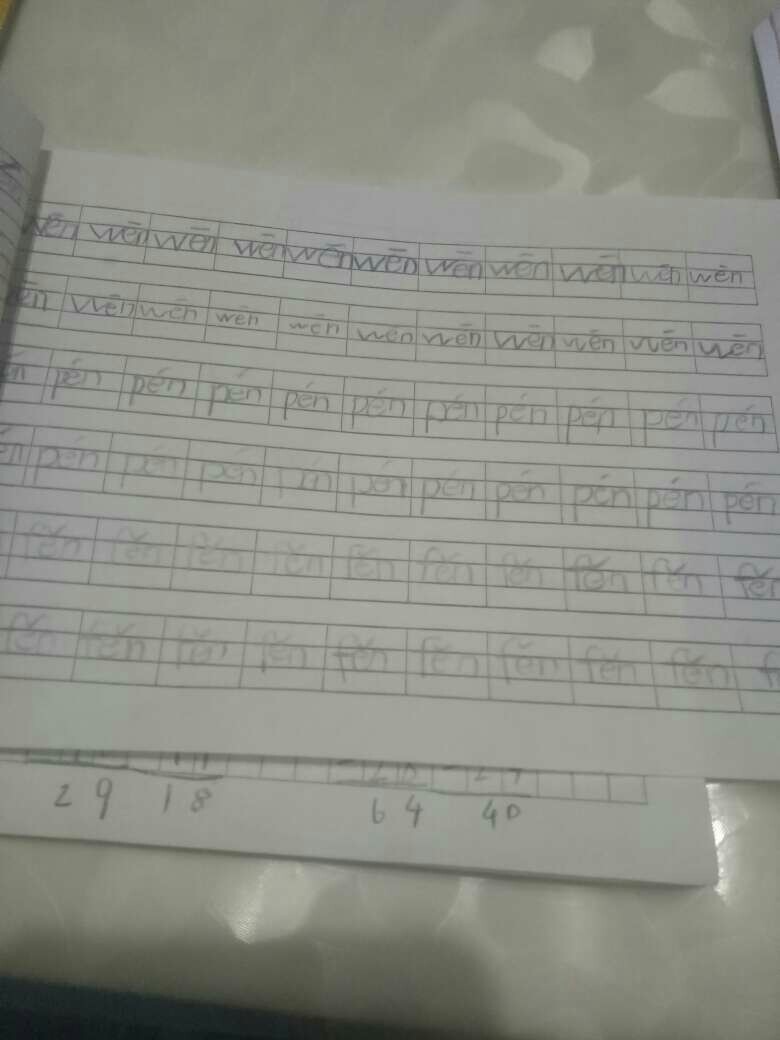 wēn wēn wēn wēn wēn wēn wēn wēn wēn wēn wēn
wēn wēn wēn wēn wēn wēn wēn wēn wēn wēn
pén pén pén pén pén pén pén pén pén pén
pén pén pén pén pén pén pén pén pén
fěn fěn fěn fěn fěn fěn fěn fěn fěn
fěn fěn fěn fěn fěn fěn fěn fěn fěn
29 18 64 40